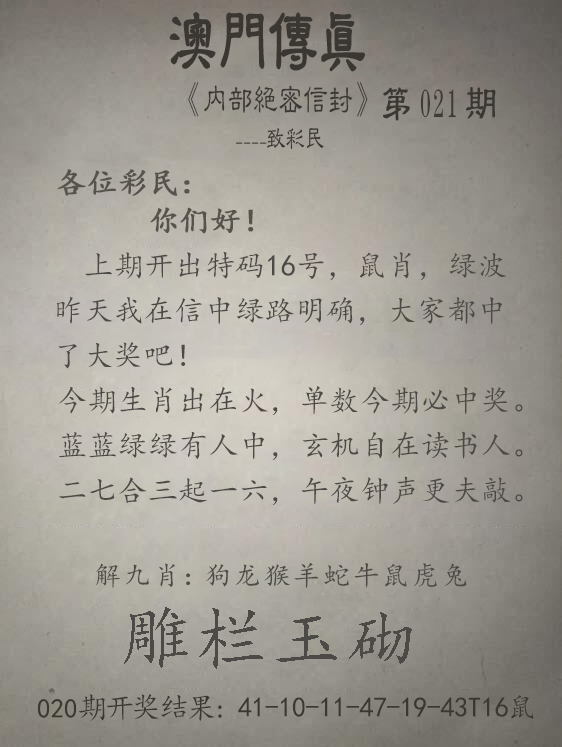 澳門傳眞
《内部絕密信封》第021期
----致彩民
各位彩民：
你们好！
上期开出特码16号，鼠肖，绿波
昨天我在信中绿路明确，大家都中
了大奖吧！
今期生肖出在火，单数今期必中奖。
蓝蓝绿绿有人中，玄机自在读书人。
二七合三起一六，午夜钟声更夫敲。
解九肖：狗龙猴羊蛇牛鼠虎兔
雕栏玉砌
020期开奖结果：41-10-11-47-19-43T16鼠